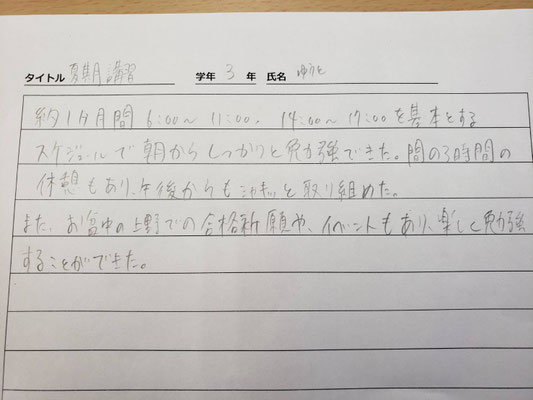 タイトル 夏期講習 学年 3 年 氏名 ゆうと
約1ヶ月間 6:00〜11:00、14:00〜17:00を基本とする
スケジュールで朝からしっかりと勉強できた。間の3時間の
休憩もあり、午後からもシャキッと取り組めた。
また、お盆中の上野での合格祈願や、イベントもあり、楽しく勉強
することができた。